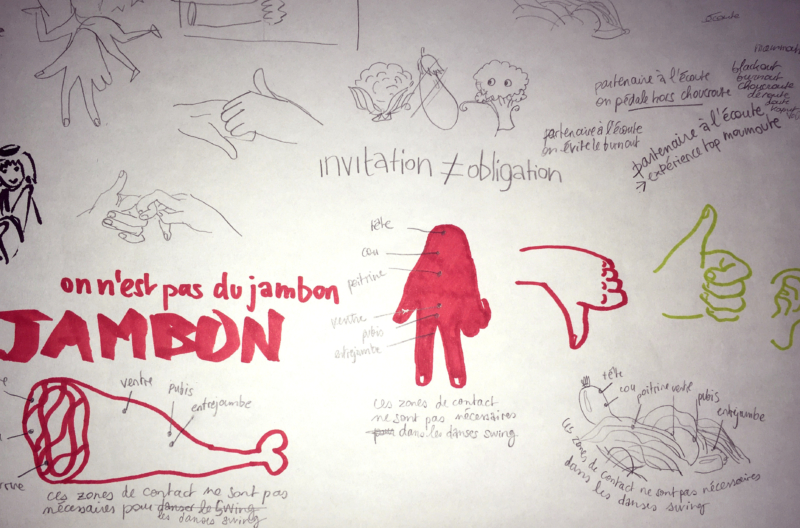 écoute
blackout
burnout
choucroute
déroute
doute
partenaire à l'écoute
on pédale hors choucroute
partenaire à l'écoute
on évite le burnout
partenaire à l'écoute
expérience top moumoute
invitation ≠ obligation
on n'est pas du jambon
JAMBON
tête
cou
poitrine
ventre
pubis
entrejambe
ces zones de contact
ne sont pas nécessaires
pour dans les danses swing
ventre
pubis
entrejambe
ces zones de contact ne sont pas
nécessaires pour danser le swing
les danses swing
tête
cou
poitrine
ventre
pubis
entrejambe
ces zones de contact ne sont pas nécessaires
dans les danses swing